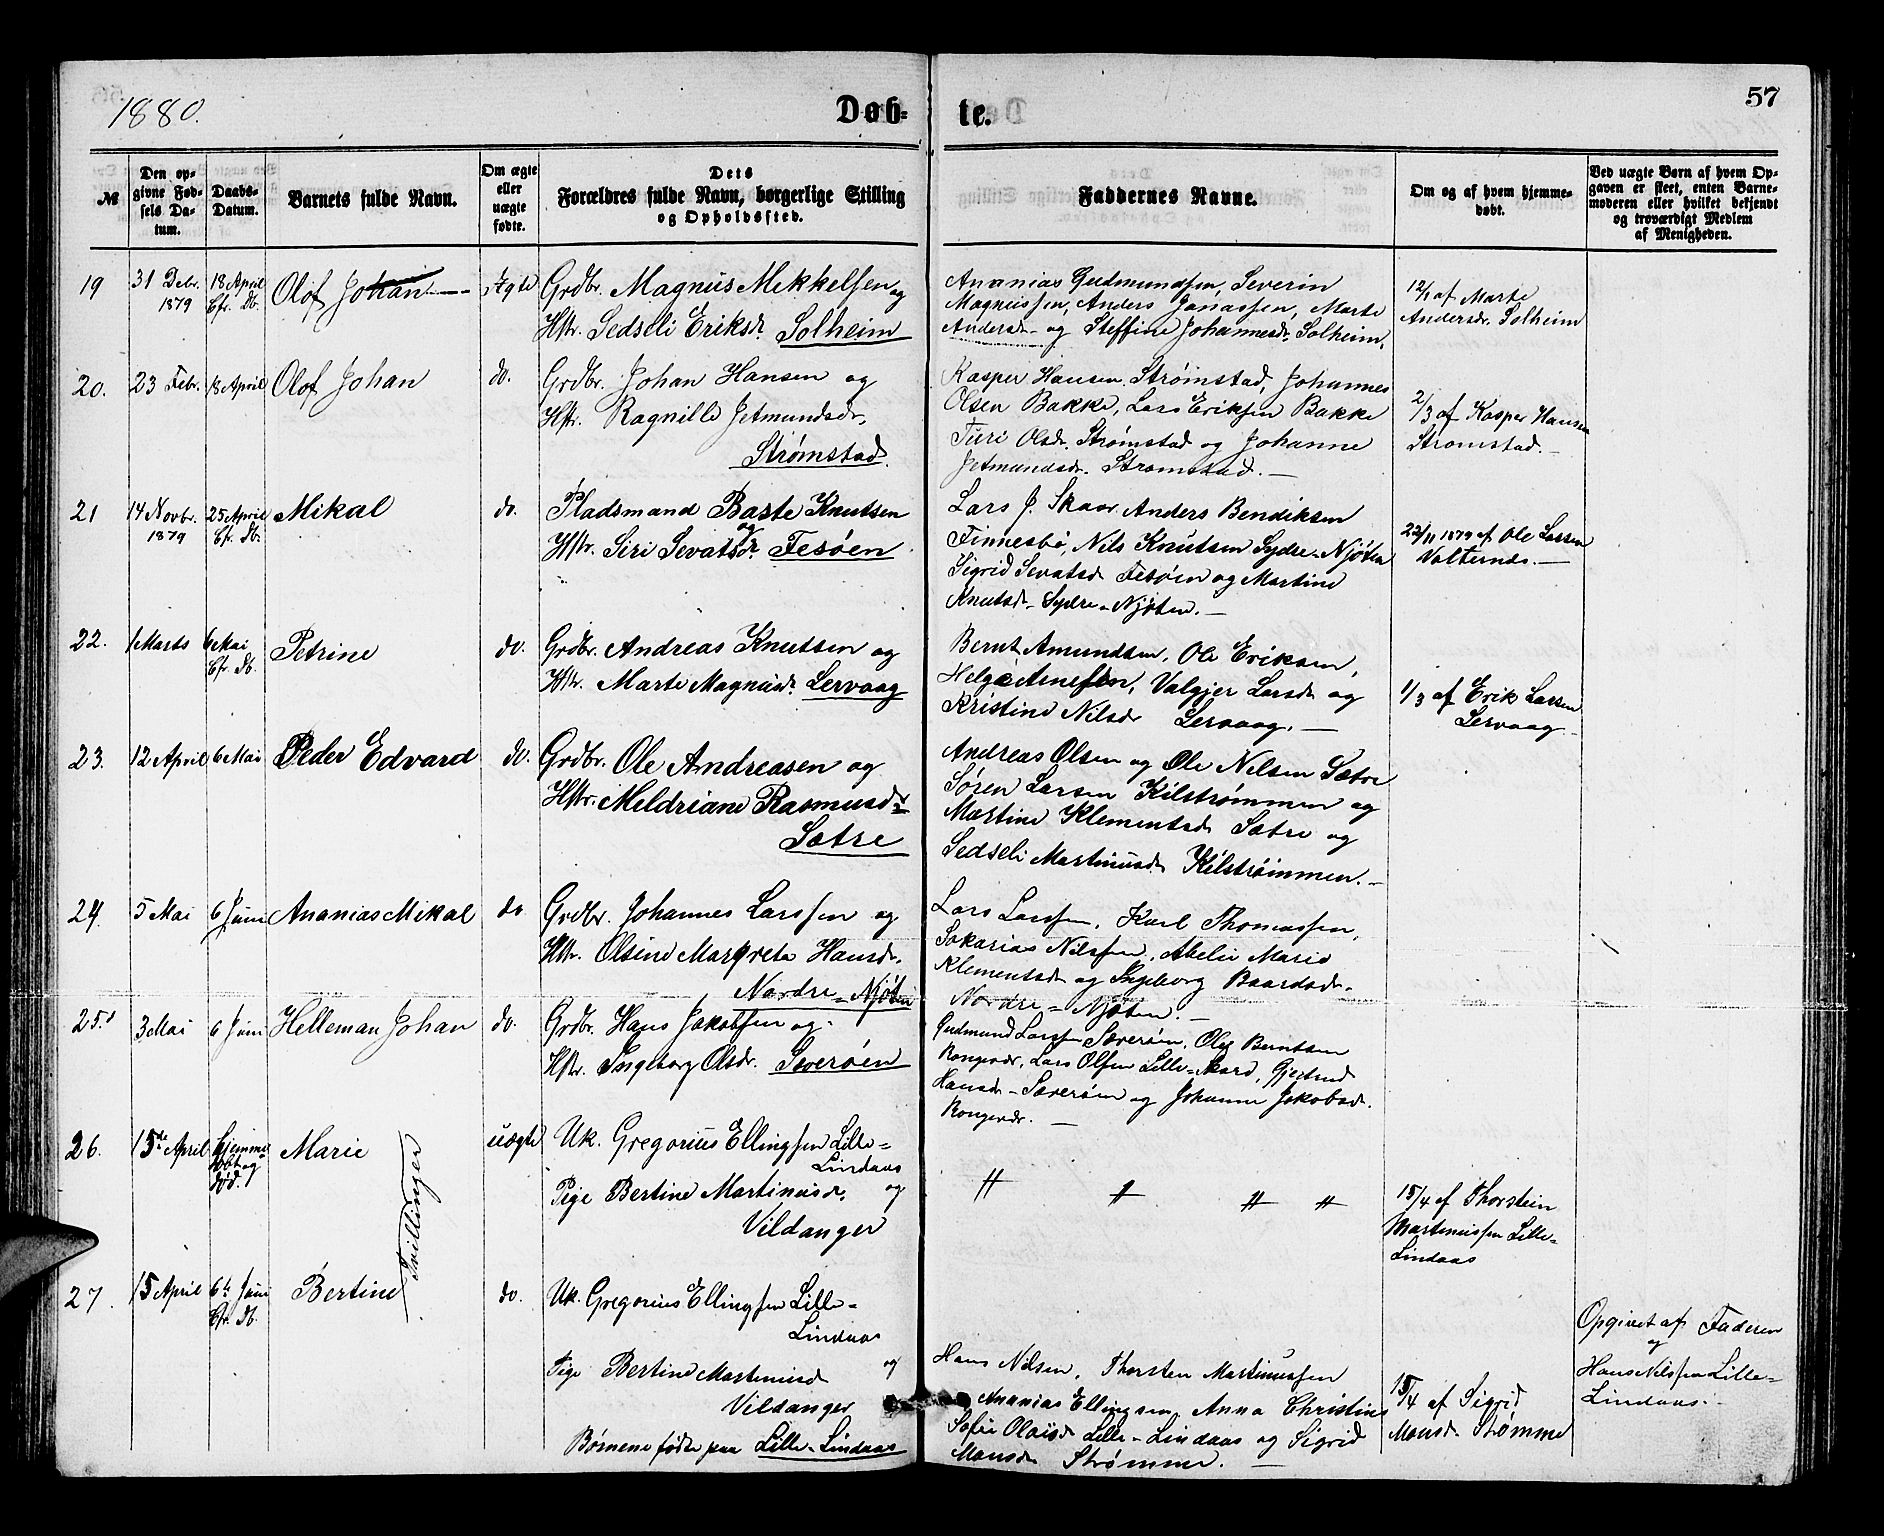 1880.
Døb-
te.
57
№
Den op-
givne Fød-
sels Da-
tum.
Daabs-
Datum.
Barnets fulde Navn.
Om ægte
eller
uægte
fødte.
Dets
Forældres fulde Navn, borgerlige Stilling
og Opholdssted.
Faddernes Navne.
Om og af hvem hjemme-
døbt.
Ved uægte Børn af hvem Op-
gaven er skeet, enten Barne-
moderen eller hvilket bekjendt
og troværdigt Medlem
af Menigheden.
19
31 Debr.
1879
18 April
Cfr. Db.
Olof Johan
Ægte
Grdbr. Magnus Mekkelsen og
Hstr. Sedseli Eriksdr. Solheim
Ananias Gudmundsen, Severin
Magnussen, Anders Jonassen, Marte
Andersd. og Steffine Johannesd. Solheim.
12/1 af Marte
Andersdr. Solheim
20.
23 Febr.
18 April
Olof Johan
do.
Grdbr. Johan Hansen og
Hstr. Ragnille Jetmundsdr.
Strømstad.
Kasper Hansen Strømstad, Johannes
Olsen Bakke, Lars Eriksen Bakke
Turi Olsdr. Strømstad og Johanne
Jetmundsd. Strømstad.
2/3 af Kasper Hansen
Strømstad.
21
14 Novbr.
1879
25 April
Cfr. Db.
Mikal
do.
Pladsmand Baste Knutsen
og
Hstr. Siri Sevatsdr. Fesøen
Lars J. Skaar Anders Bendiksen
Finnesbø, Nils Knutsen Sydre-Njøten
Sigrid Sevatsd. Fesøen og Martine
Knutsd. Sydre-Njøten.
22/11 1879 af Ole Larsen
22.
1 Marts
6 Mai
Cfr. Db.
Petrine
do.
Grdbr. Andreas Knutsen og
Hstr. Marte Magnusd. Lervaag
Bernt Amundsen, Ole Eriksen,
Helge Arnesen, Valgjer Larsd. og
Kristine Nilsdr Lervaag.
1/3 af Erik Larsen
Lervaag
23.
12 April
6 Mai
Peder Edvard
do.
Grdbr. Ole Andreasen og
Hstr. Meldriane Rasmusdr.
Sætre
Andreas Olsen og Ole Nilsen Sætre
Søren Larsen Kilstrømmen og
Martine Klementsd. Sætre og
Sedseli Martinusd. Kilstrømmen.
24.
5 Mai
6 Juni
Ananias Mikal
do
Grdbr. Johannes Larssen og
Hstr. Olsine Margrete Hansdr.
Nordre-Njøten
Lars Larssen, Karl Thomassen,
Sakarias Nilssen, Abelie Marie
Klementsd. og Ingeborg Baardsd.
Nordre-Njøten.
25.
3 Mai
6 Juni
Helleman Johan
do.
Grdbr. Hans Jakobsen og
Hstr. Ingeborg Olsdr. Saverøen
Gudmund Larssen Saverøen, Ole Berntsen
Rongevær, Lars Olsen Lille-Mars, Gjertrud
Hansd. Saverøen og Johanne Jakobsd.
Rongevær.
26.
15de April
hjemme
døbt og
død.
Marie
Tvillinger
uægte
Uk. Gregorius Ellingsen Lille-
Lindaas
Pige Bertine Martinusd. og
Vildanger
〃 〃 〃 〃
15/4 af Thorstein
Martinussen Lille-
Lindaas
27.
15 April
6te Juni
Cfr. Db.
Bertine
do.
Uk. Gregorius Ellingsen Lille-
Lindaas
Pige Bertine Martinusd og
Vildanger
Børnene fødte paa Lille-Lindaas
Hans Nilsen, Thorsten Martinussen
Ananias Ellingsen, Anna Christine
Sofie Olaisd. Lille-Lindaas og Sigrid
Monsd. Strømme.
15/4 af Sigrid
Monsd. Strømme
Opgivet af Faderen
og
Hans Nilssen Lille-
Lindaas.